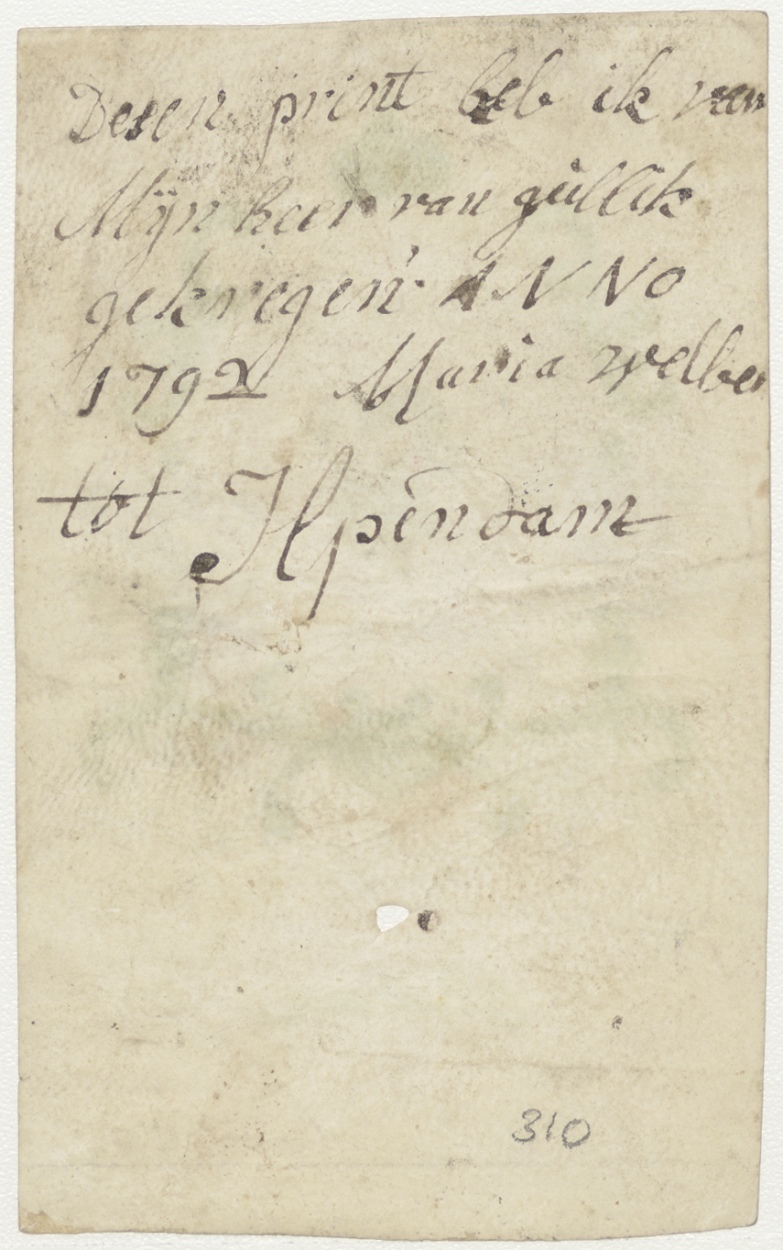 Desen print heb ik van
Mijn heer van gullik
gekregen ANNO
1792 Maria welber
tot Ilpendam
310